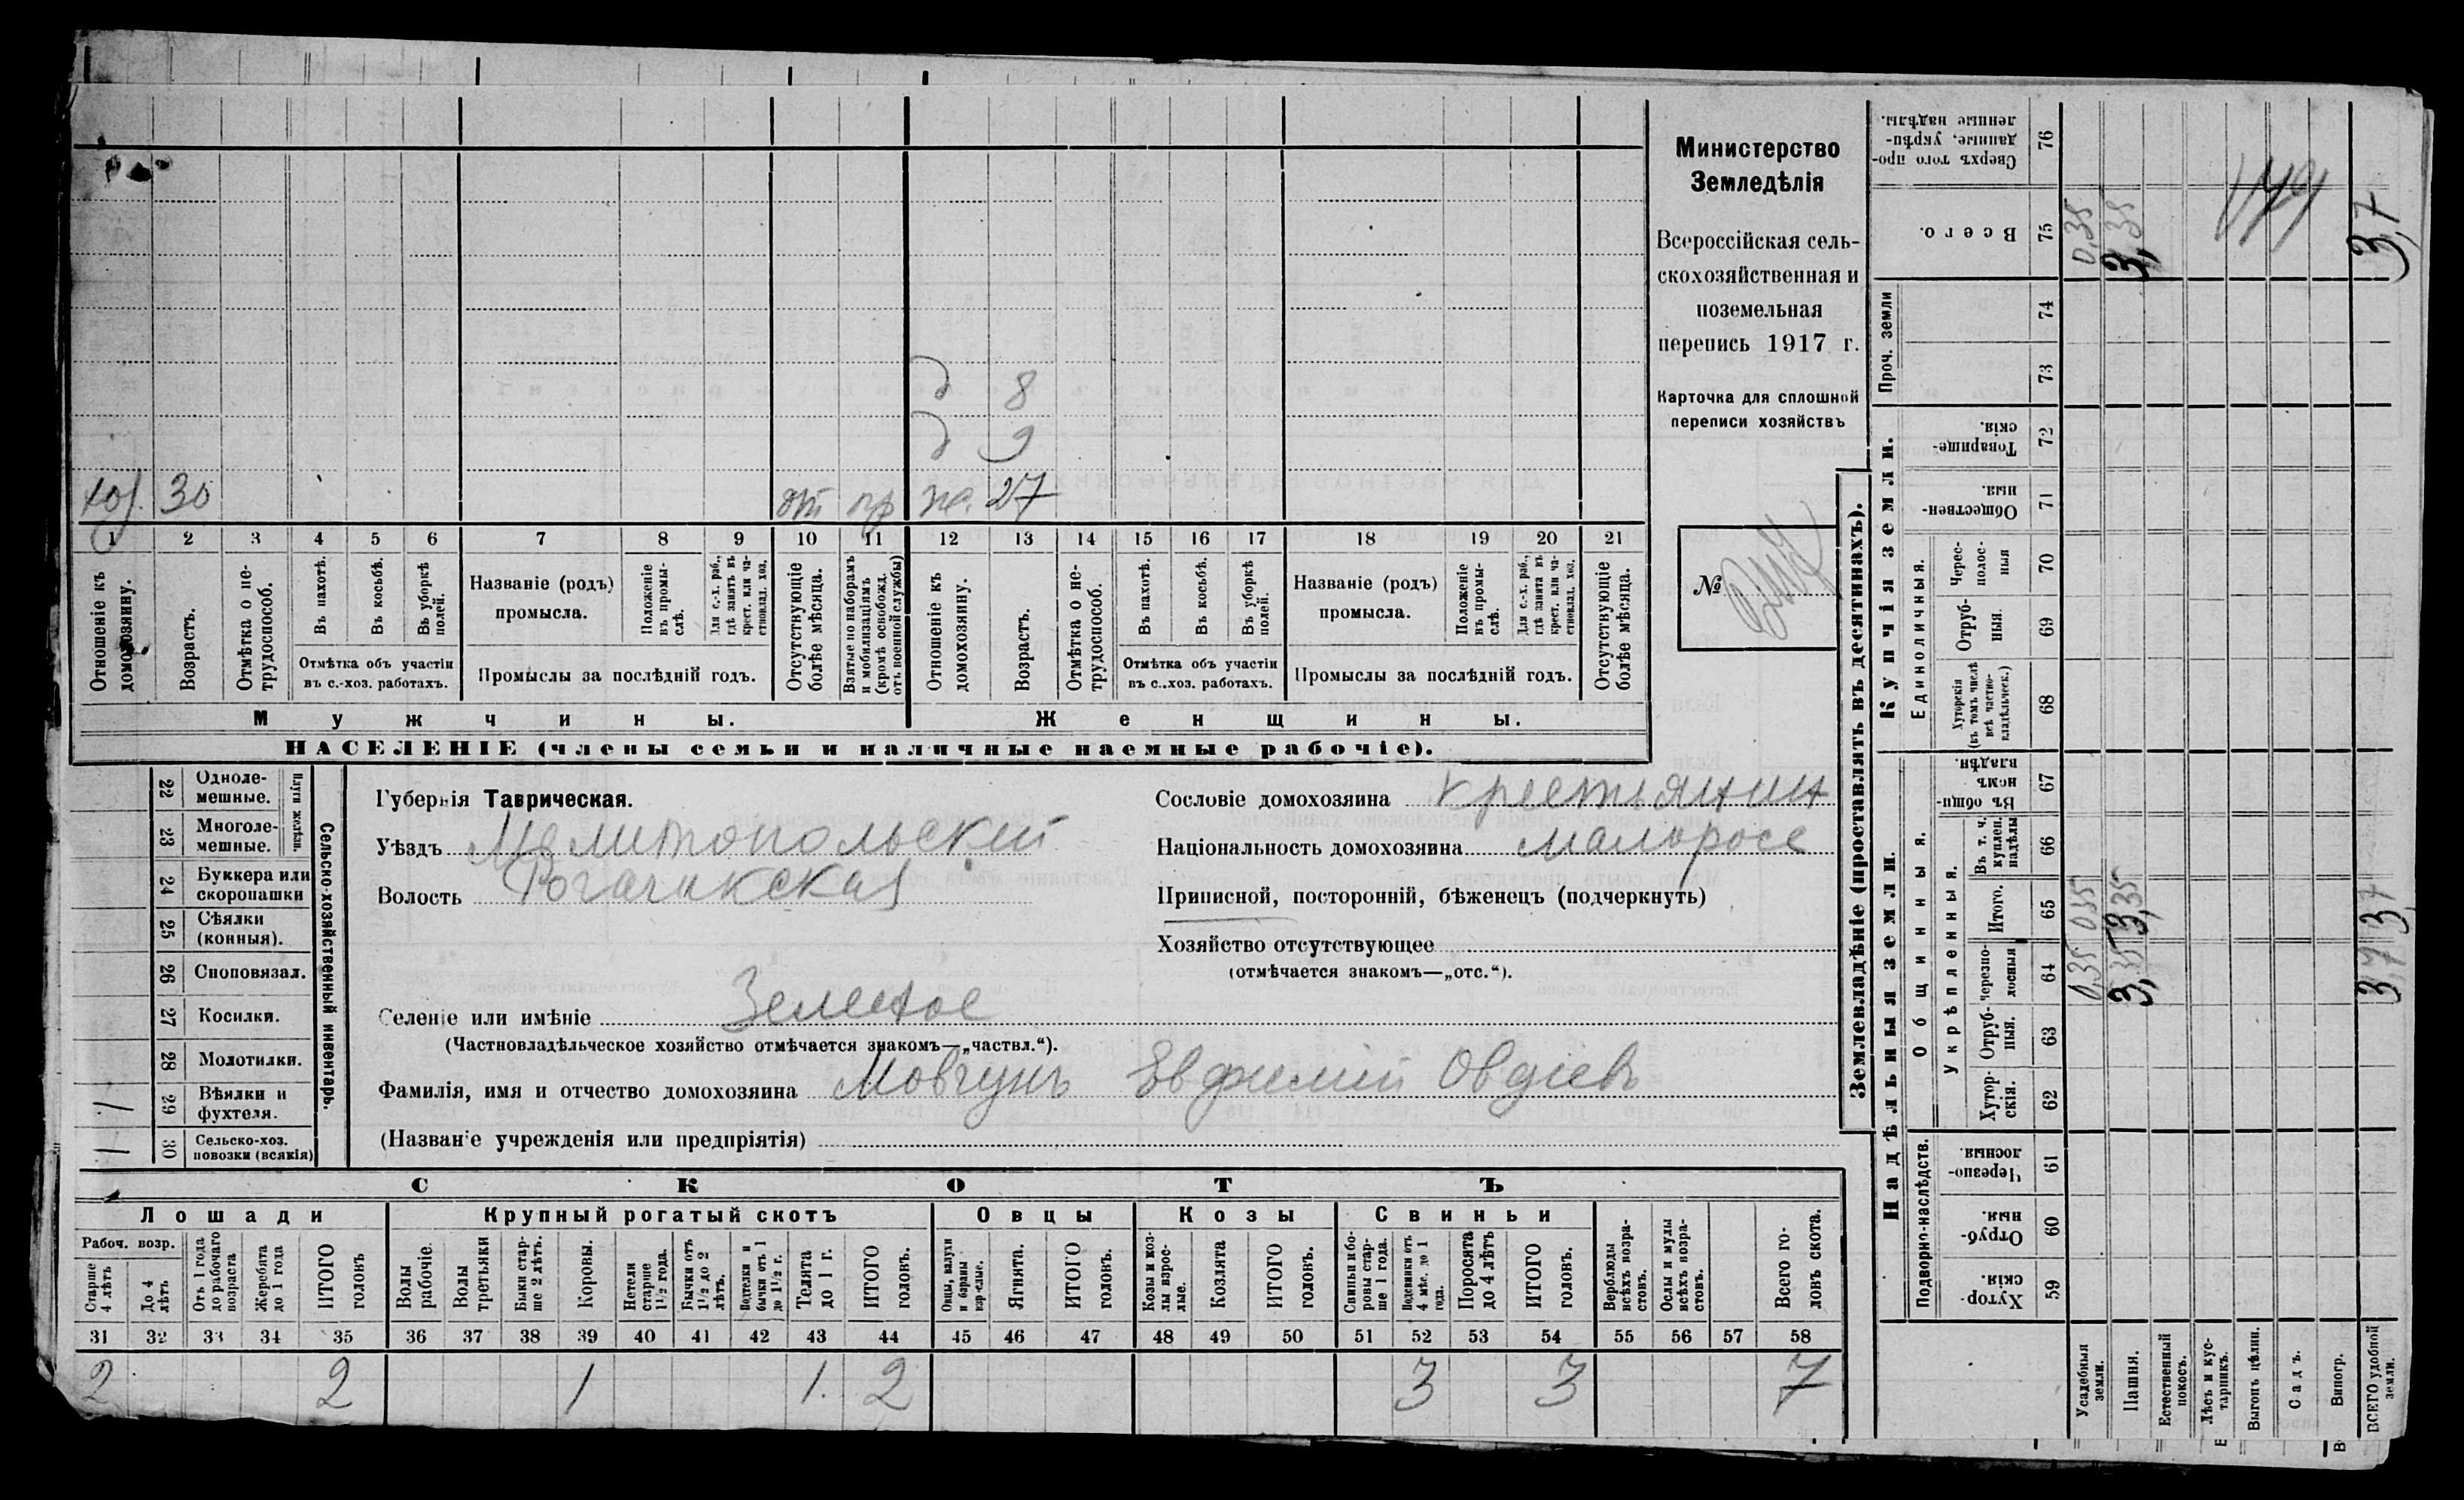 хоз. 30 от пр
д 8
д 9
же. 27
1 2 3 4 5 6 7 8 9 10 11 12 13 14 15 16 17 18 19 20 21
Отношеніе къ домохозяину.
Возрастъ.
Отмѣтка о не-трудоспособ.
Въ пахотѣ.
Въ косьбѣ.
Въ уборкѣ полей.
Отмѣтка объ участіи
въ с.-хоз. работахъ.
Названіе (родъ)
промысла.
Положеніе въ промы-слѣ.
Для с.-х. раб., гдѣ занятъ въ крест. или ча-стновлад. хоз.
Промыслы за послѣдній годъ.
Отсутствующіе болѣе мѣсяца.
Взятые по наборамъ и мобилизаціямъ (кромѣ освобожд. отъ военной службы)
Отношеніе къ домохозяину.
Возрастъ.
Отмѣтка о не-трудоспособ.
Въ пахотѣ.
Въ косьбѣ.
Въ уборкѣ полей.
Отмѣтка объ участіи
въ с..хоз. работахъ.
Названіе (родъ)
промысла.
Положеніе въ промы-слѣ.
Для с.-х. раб., гдѣ занята въ крест. или ча-стновлад. хоз.
Промыслы за послѣдній годъ.
Отсутствующіе болѣе мѣсяца.
Мужчины. Женщины.
НАСЕЛЕНІЕ (члены семьи и наличные наемные рабочіе).
Министерство
Земледѣлія
Всероссійская сель-
скохозяйственная и
поземельная
перепись 1917 г.
Карточка для сплошной
переписи хозяйствъ
№
22 Одноле-мешные.
23 Многоле-мешные.
Плуги желѣзн.
24 Буккера или скоропашки
25 Сѣялки (конныя).
26 Сноповязал.
27 Косилки.
28 Молотилки.
1 29 Вѣялки и фухтеля.
1 30 Сельско-хоз. повозки (всякія)
Сельско-хозяйственный инвентарь.
Губернія Таврическая.
Уѣздъ Мелитопольский
Волость Рогачикская
Сословіе домохозяина крестьянин
Національность домохозяина малоросс
Приписной, посторонній, бѣженецъ (подчеркнуть)
Хозяйство отсутствующее
(отмѣчается знакомъ—„отс.“).
Селеніе или имѣніе Зеленое
(Частновладѣльческое хозяйство отмѣчается знакомъ—„частвл.“).
Фамилія, имя и отчество домохозяина Мовчунъ Евфимій Овдіевъ
(Названіе учрежденія или предпріятія)
СКОТЪ
Лошади Крупный рогатый скотъ Овцы Козы Свиньи
Рабоч. возр.
Старше 4 лѣтъ
До 4 лѣтъ
Отъ 1 года до рабочаго возраста
Жеребята до 1 года
ИТОГО головъ
Волы рабочіе.
Волы третьяки
Быки стар-ше 2 лѣтъ.
Коровы.
Нетели старше 1½ года.
Бычки отъ 1½ до 2 лѣтъ.
Подтелки и бычки отъ 1 до 1½ г.
Телята до 1 г.
ИТОГО головъ.
Овцы, валухи и бараны взрослые.
Ягнята.
ИТОГО головъ.
Козы и коз-лы взрос-лые.
Козлята
ИТОГО головъ.
Свиньи и бо-ровы стар-ше 1 года.
Подсвинки отъ 4 мѣс. до 1 года.
Поросята до 4 лѣтъ
ИТОГО головъ.
Верблюды всѣхъ возра-стовъ.
Ослы и мулы всѣхъ возра-стовъ.
Всего го-ловъ скота.
31 32 33 34 35 36 37 38 39 40 41 42 43 44 45 46 47 48 49 50 51 52 53 54 55 56 57 58
2 2 1 1. 2 3 3 7
Землевладѣніе (проставлять въ десятинахъ).
Надѣльныя земли. Купчія земли. Проч. земли
Подворно-наслѣдств.
Общинныя.
Укрѣпленныя.
Единоличныя.
Хутор-скія. 59
Отруб-ныя. 60
Черезпо-лосныя. 61
Хутор-скія. 62
Отруб-ныя. 63
Черезпо-лосныя 64
Итого. 65
Въ т. ч. куплен. надѣлы 66
Въ общи-номъ владѣн. 67
Хуторскія (въ томъ числѣ всѣ частно-владѣльческ.) 68
Отруб-ныя 69
Черес-полос-ныя 70
Обществен-ныя. 71
Товарище-скія. 72
73
74
Всего. 75
Сверхъ того про-данные, укрѣп-ленные надѣлы. 76
Усадебныя земли. 0,35 035 0,35
Пашня. 3,35 3,35 3,35
Естественный покосъ.
Лѣсъ и кус-тарникъ.
Выгонъ цѣлин.
Садъ.
Виногр.
ВСЕГО удобной земли. 3,7 3,7 3,7